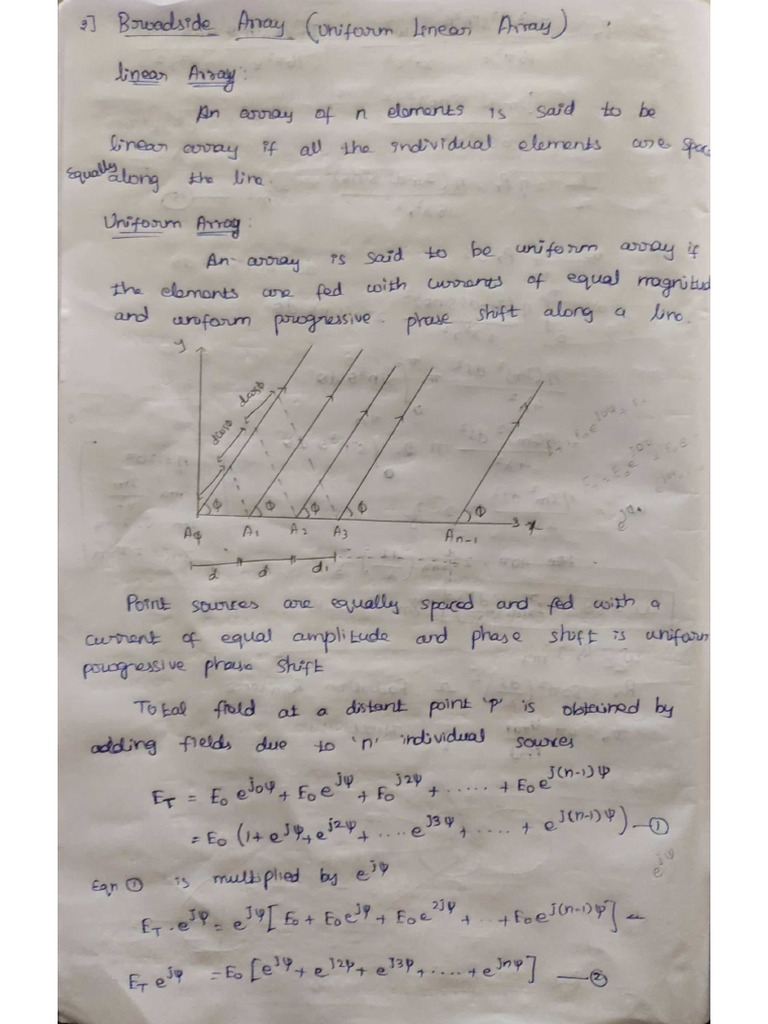 2] Broadside Array (Uniform Linear Array)
linear Array:
An array of n elements is said to be
linear array if all the individual elements are spac
Equally along the line.
Uniform Array:
An array is said to be uniform array if
the elements are fed with currents of equal magnitud
and uniform progressive phase shift along a line.
y
dcosφ
dcosφ
φ φ φ φ φ
x
A0 A1 A2 A3 An-1
d d d
Point sources are equally spaced and fed with a
current of equal amplitude and phase shift is uniform
progressive phase shift
Total field at a distant point 'p' is obtained by
adding fields due to 'n' individual sources
E_T = E_0 e^{j0ψ} + E_0 e^{jψ} + E_0^{j2ψ} + ...... + E_0 e^{j(n-1)ψ}
= E_0 (1 + e^{jψ} + e^{j2ψ} + .... e^{j3ψ} + ..... + e^{j(n-1)ψ}) — ①
Eqn ① is multiplied by e^{jψ}
E_T . e^{jψ} = e^{jψ} [E_0 + E_0 e^{jψ} + E_0 e^{2jψ} + ... + E_0 e^{j(n-1)ψ}]
E_T e^{jψ} = E_0 [e^{jψ} + e^{j2ψ} + e^{j3ψ} + ..... + e^{jnψ}] — ②